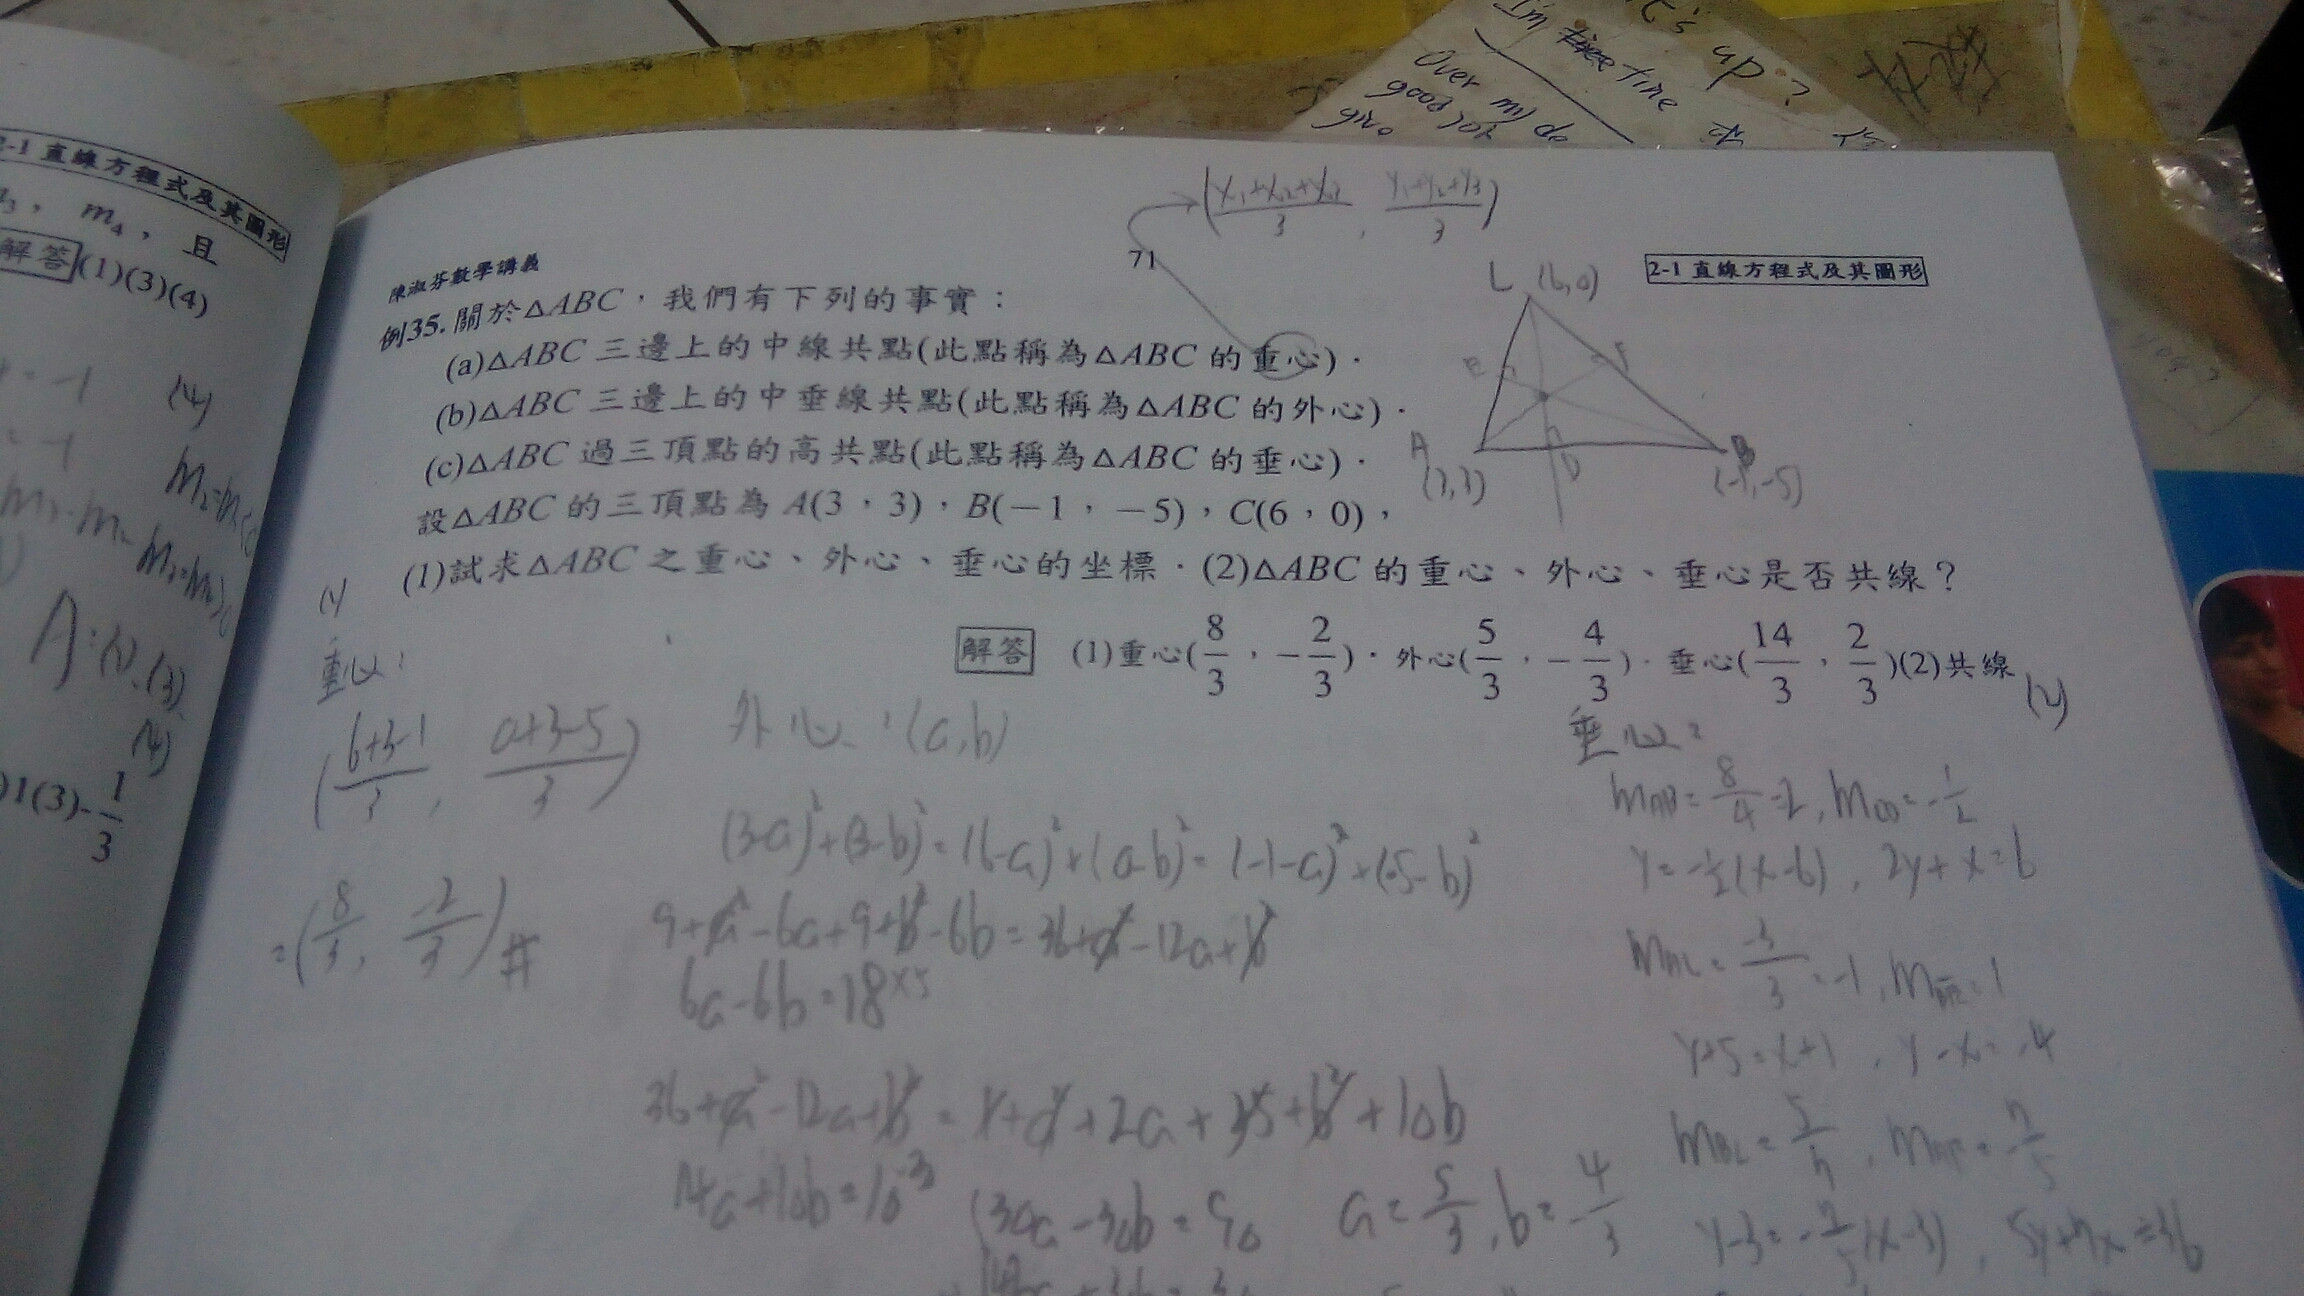 I'm fine
's up?
Over my de
good job
give
2-1 直線方程式及其圖形
m₃, m₄, 且
解答(1)(3)(4)
= -1 (4)
= -1
A:(1)、(3)、
(4)
)1(3)-1/3
((x₁+x₂+x₃)/3, (y₁+y₂+y₃)/3)
71
陳淑芬數學講義
2-1 直線方程式及其圖形
例35. 關於△ABC,我們有下列的事實:
(a)△ABC 三邊上的中線共點(此點稱為△ABC 的重心).
(b)△ABC 三邊上的中垂線共點(此點稱為△ABC 的外心).
(c)△ABC 過三頂點的高共點(此點稱為△ABC 的垂心).
設△ABC 的三頂點為 A(3,3),B(-1,-5),C(6,0),
(1)試求△ABC 之重心、外心、垂心的坐標.(2)△ABC 的重心、外心、垂心是否共線?
C (6,0)
E F
A B
(3,3) D (-1,-5)
解答 (1)重心(8/3,-2/3).外心(5/3,-4/3).垂心(14/3,2/3)(2)共線
(1)
重心:
((6+3-1)/3, (0+3-5)/3)
=(8/3, -2/3)#
外心:(a,b)
(3-a)²+(3-b)²=(6-a)²+(0-b)²=(-1-a)²+(-5-b)²
9+a²-6a+9+b²-6b=36+a²-12a+b²
6a-6b=18 ×5
36+a²-12a+b²=1+a²+2a+25+b²+10b
14a+10b=10 ×3
30a-30b=90
a=5/3, b=-4/3
(2)
垂心:
mAB=8/4=2, mCD=-1/2
y=-1/2(x-6), 2y+x=6
mAC=-3/3=-1, mBE=1
y+5=x+1, y-x=-4
mBC=5/7, mAF=-7/5
y-3=-7/5(x-3), 5y+7x=36